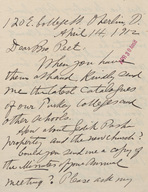 120 E. College St. Oberlin, O.
April 14, 1912
Dear Bro Peet
When you have
them at hand, Kindly send
me the latest Catalogues
of our Turkey Colleges and
other schools.
How about
property, and the new church?
Could you send me a Copy of
the Minutes of your Annual
meeting? Please ask my